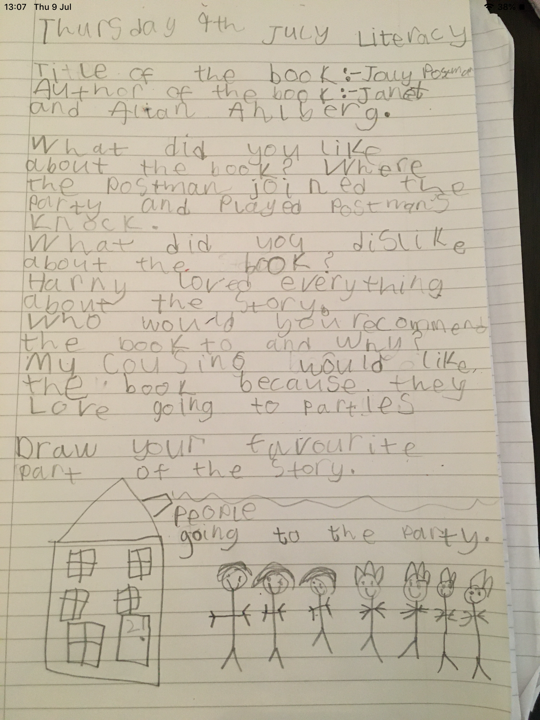 13:07 Thu 9 Jul
38%
Thursday 9th July Literacy
Title of the book:- Jolly Postman
Author of the book:- Janet
and Allan Ahlberg.
What did you like
about the book? Where
the postman joined the
party and played postman's
knock.
What did you dislike
about the book?
Harry loved everything
about the story.
Who would you recommend
the book to and why?
My cousins would like
the book because they
Love going to parties
Draw your favourite
part of the story.
PeoPle
going to the party.
21